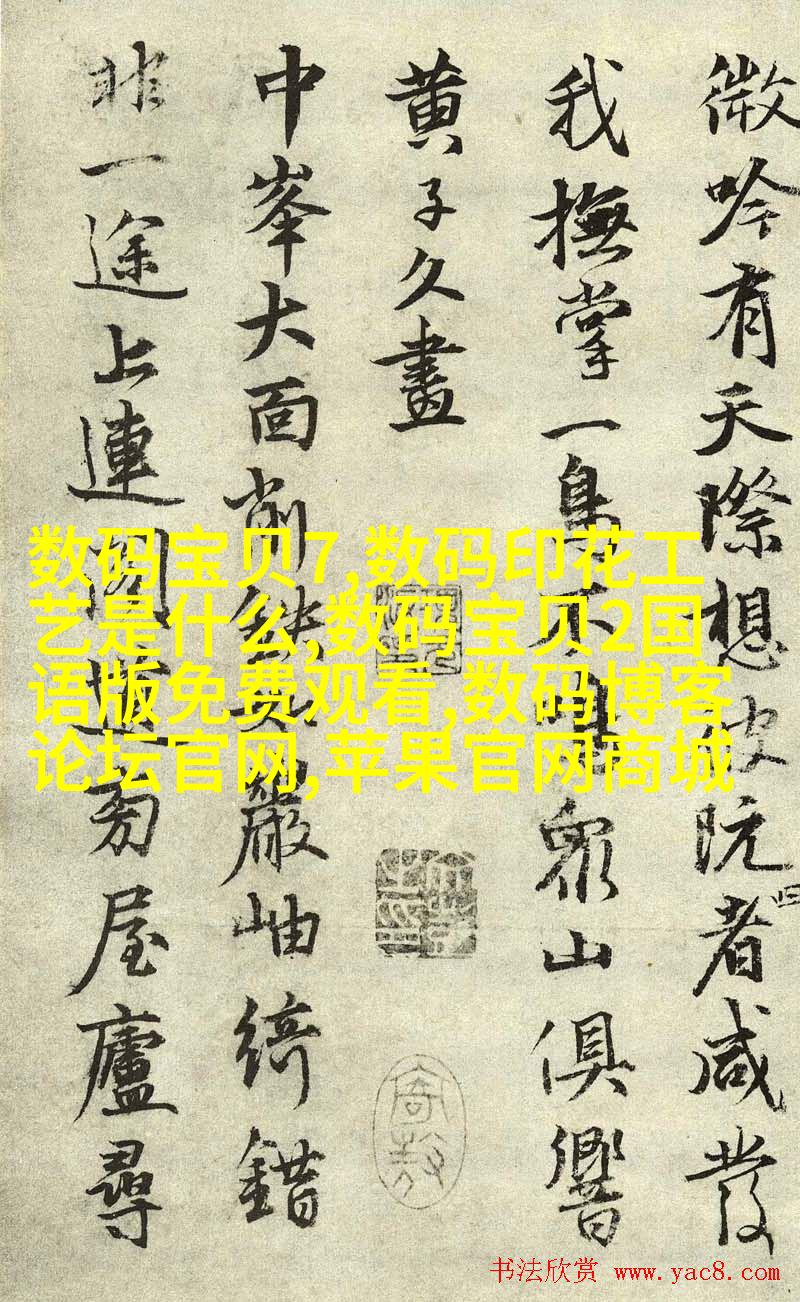 微吟有天際想彼阮者咸發
我撫掌一鳥不眾山俱響
黄子久畫
中峯大面削鐵巖岫綺錯
非一途上連閣道旁屋廬尋
数码宝贝7,数码印花工
艺是什么,数码宝贝2国
语版免费观看,数码博客
论坛官网,苹果官网商城
书法欣赏 www.yac8.com